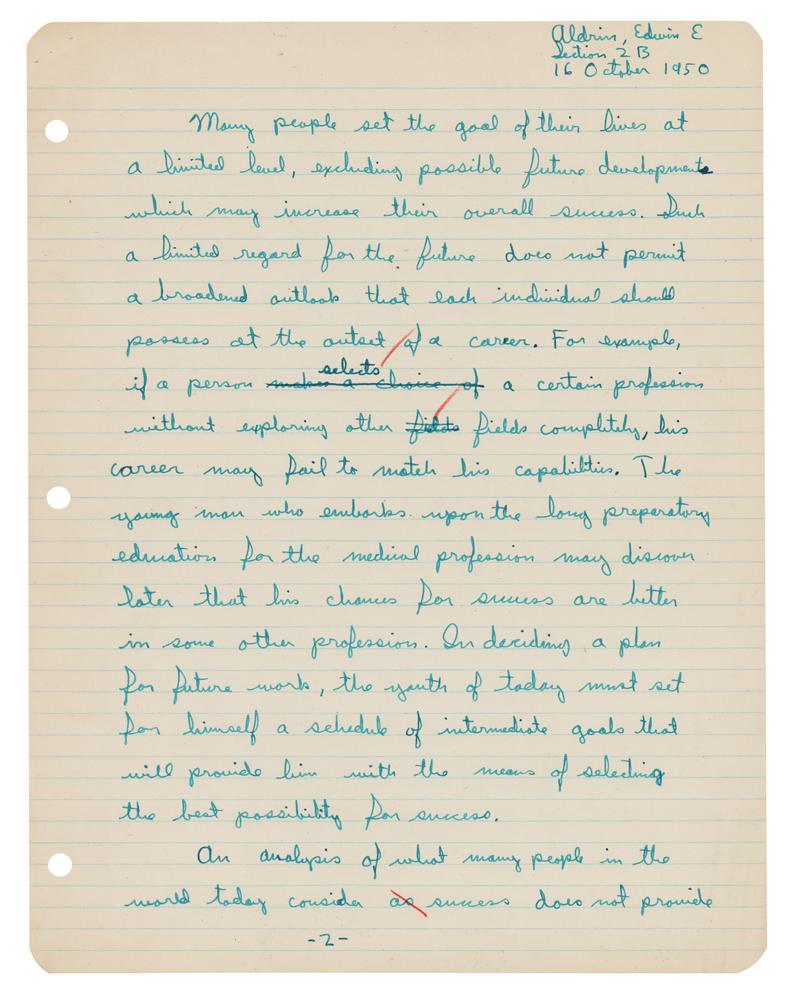 Aldrin, Edwin E
Section 2B
16 October 1950
Many people set the goal of their lives at
a limited level, excluding possible future developments
which may increase their overall success. Such
a limited regard for the future does not permit
a broadened outlook that each individual should
possess at the outset of a career. For example,
selects
if a person makes a choice of a certain profession
without exploring other fields fields completely, his
career may fail to match his capabilities. The
young man who embarks upon the long preparatory
education for the medical profession may discover
later that his chances for success are better
in some other profession. In deciding a plan
for future work, the youth of today must set
for himself a schedule of intermediate goals that
will provide him with the means of selecting
the best possibility for success.
An analysis of what many people in the
world today consider as success does not provide
-2-